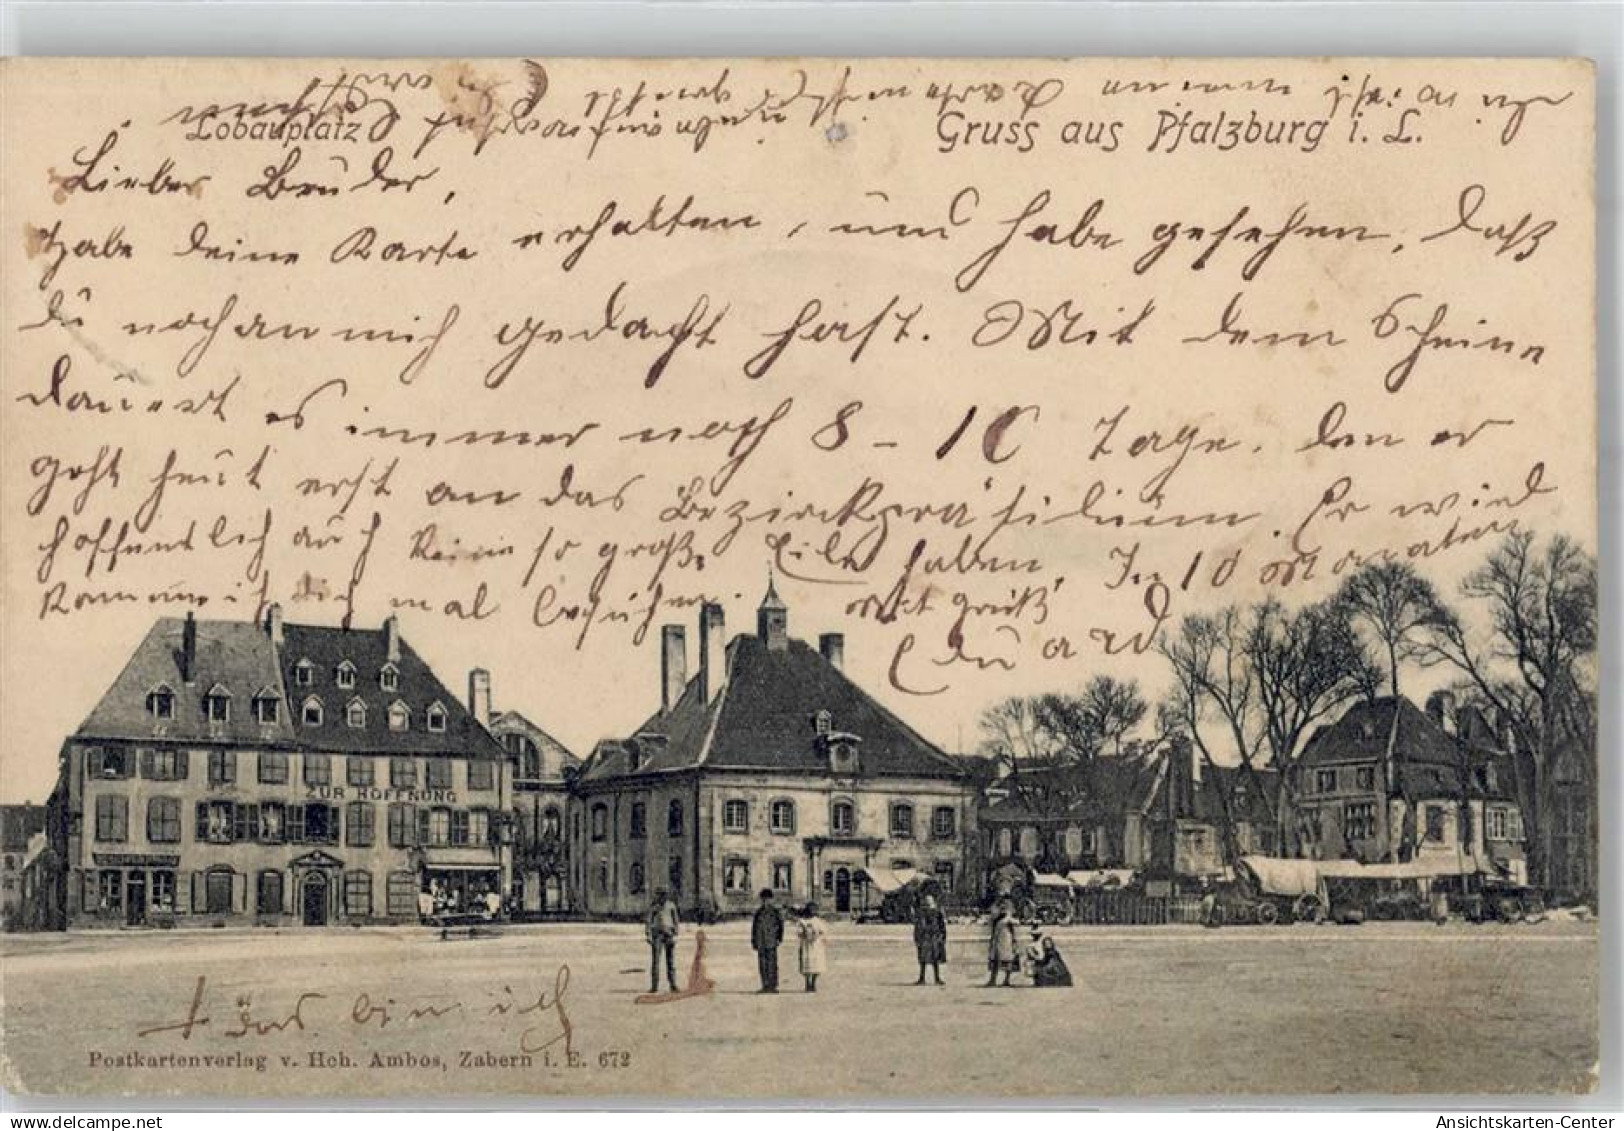 Lobauplatz
Gruss aus Pfalzburg i. L.
Lieber Bruder,
Habe deine Karte erhalten, und habe gesehen, daß
du noch an mich gedacht hast. Mit dem Scheine
dauert es immer noch 8 - 10 Tage. den er
geht heut erst an das Bezirckpräsidium. Er wird
hoffentlich auch keine so große Eile haben. In 10 Monaten
komme ich dich mal besuchen.
Gruß
Eduard
ZUR HOFFNUNG
+ das bin ich
Postkartenverlag v. Hch. Ambos, Zabern i. E. 672
delcampe.net
Ansichtskarten-Center